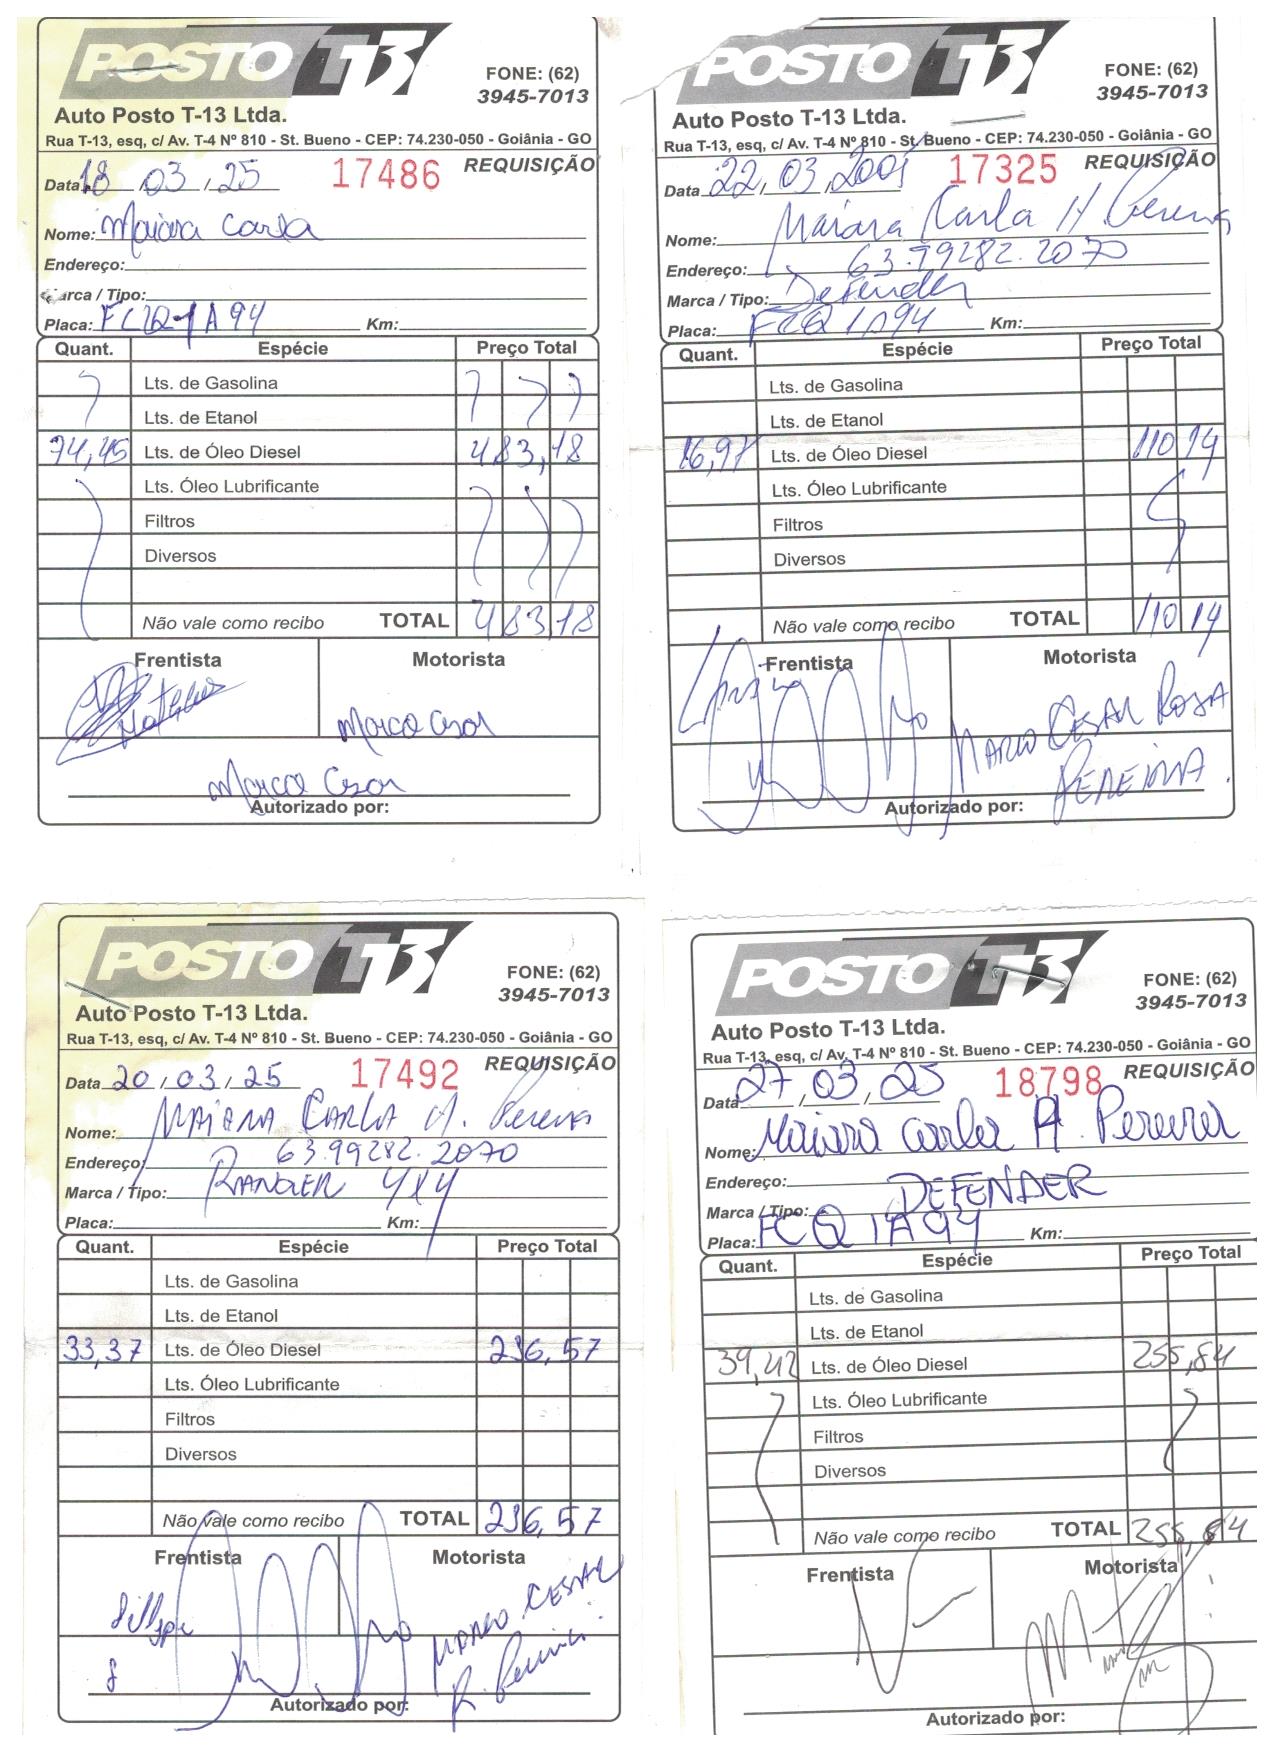 POSTO T13
FONE: (62)
3945-7013
Auto Posto T-13 Ltda.
Rua T-13, esq, c/ Av. T-4 Nº 810 - St. Bueno - CEP: 74.230-050 - Goiânia - GO
Data 18 / 03 / 25 17486 REQUISIÇÃO
Nome: Maiara Carla
Endereço:
Marca / Tipo:
Placa: FCQ 1A94 Km:
Quant. Espécie Preço Total
Lts. de Gasolina
Lts. de Etanol
74,45 Lts. de Óleo Diesel 483,18
Lts. Óleo Lubrificante
Filtros
Diversos
Não vale como recibo TOTAL 483,18
Frentista Motorista
Matheus Marco Cesar
Marco Cesar
Autorizado por:
POSTO T13
FONE: (62)
3945-7013
Auto Posto T-13 Ltda.
Rua T-13, esq, c/ Av. T-4 Nº 810 - St. Bueno - CEP: 74.230-050 - Goiânia - GO
Data 22 / 03 / 17325 REQUISIÇÃO
Nome: Maiara Carla H. Pereira
Endereço: 63.99282.2070
Marca / Tipo: Defender
Placa: FCQ 1A94 Km:
Quant. Espécie Preço Total
Lts. de Gasolina
Lts. de Etanol
16,97 Lts. de Óleo Diesel 110 14
Lts. Óleo Lubrificante
Filtros
Diversos
Não vale como recibo TOTAL 110 14
Frentista Motorista
MARCO CESAR ROSA
PEREIRA.
Autorizado por:
POSTO T13
FONE: (62)
3945-7013
Auto Posto T-13 Ltda.
Rua T-13, esq, c/ Av. T-4 Nº 810 - St. Bueno - CEP: 74.230-050 - Goiânia - GO
Data 20 / 03 / 25 17492 REQUISIÇÃO
Nome: MAIARA CARLA H. Pereira
Endereço: 63.99282.2070
Marca / Tipo: RANGER 4X4
Placa: Km:
Quant. Espécie Preço Total
Lts. de Gasolina
Lts. de Etanol
33,37 Lts. de Óleo Diesel 236,57
Lts. Óleo Lubrificante
Filtros
Diversos
Não vale como recibo TOTAL 236,57
Frentista Motorista
MARCO CESAR
R. Pereira
Autorizado por:
POSTO T13
FONE: (62)
3945-7013
Auto Posto T-13 Ltda.
Rua T-13, esq, c/ Av. T-4 Nº 810 - St. Bueno - CEP: 74.230-050 - Goiânia - GO
Data 27 / 03 / 25 18798 REQUISIÇÃO
Nome: Maiara Carla H. Pereira
Endereço:
Marca / Tipo: DEFENDER
Placa: FCQ 1A94 Km:
Quant. Espécie Preço Total
Lts. de Gasolina
Lts. de Etanol
39,42 Lts. de Óleo Diesel 255,84
Lts. Óleo Lubrificante
Filtros
Diversos
Não vale como recibo TOTAL 255,84
Frentista Motorista
Autorizado por: